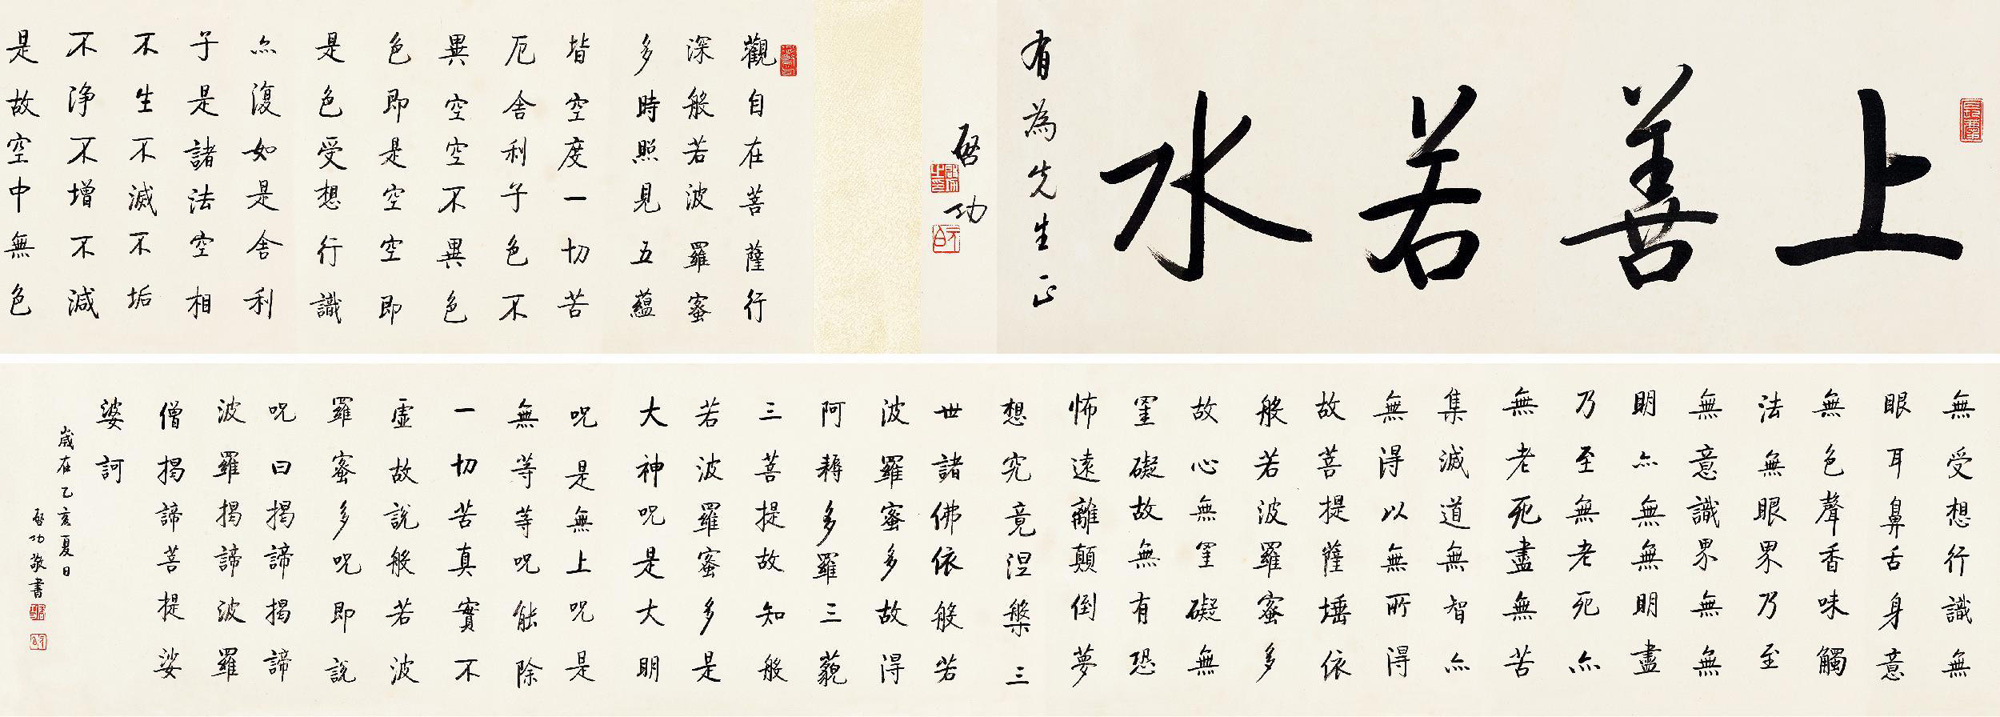 上善若水
有為先生正
啟功
觀自在菩薩行
深般若波羅蜜
多時照見五蘊
皆空度一切苦
厄舍利子色不
異空空不異色
色即是空空即
是色受想行識
亦復如是舍利
子是諸法空相
不生不滅不垢
不淨不增不減
是故空中無色
無受想行識無
眼耳鼻舌身意
無色聲香味觸
法無眼界乃至
無意識界無無
明亦無無明盡
乃至無老死亦
無老死盡無苦
集滅道無智亦
無得以無所得
故菩提薩埵依
般若波羅蜜多
故心無罣礙無
罣礙故無有恐
怖遠離顛倒夢
想究竟涅槃三
世諸佛依般若
波羅蜜多故得
阿耨多羅三藐
三菩提故知般
若波羅蜜多是
大神呪是大明
呪是無上呪是
無等等呪能除
一切苦真實不
虛故說般若波
羅蜜多呪即說
呪曰揭諦揭諦
波羅揭諦波羅
僧揭諦菩提娑
婆訶
歲在乙亥夏日
啟功敬書